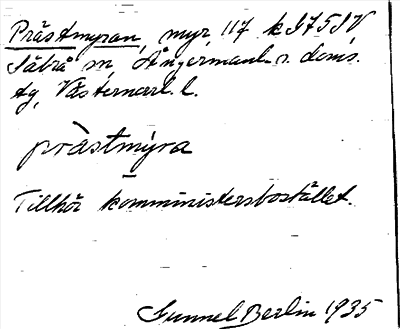 Prästmyran, myr, 117 k I75IV
Säbrå sn, Ångermanl. s. doms.
tg, Västernorrl. l.
prästmýra
Tillhör komministersbostället.
Gunnel Berlin 1935